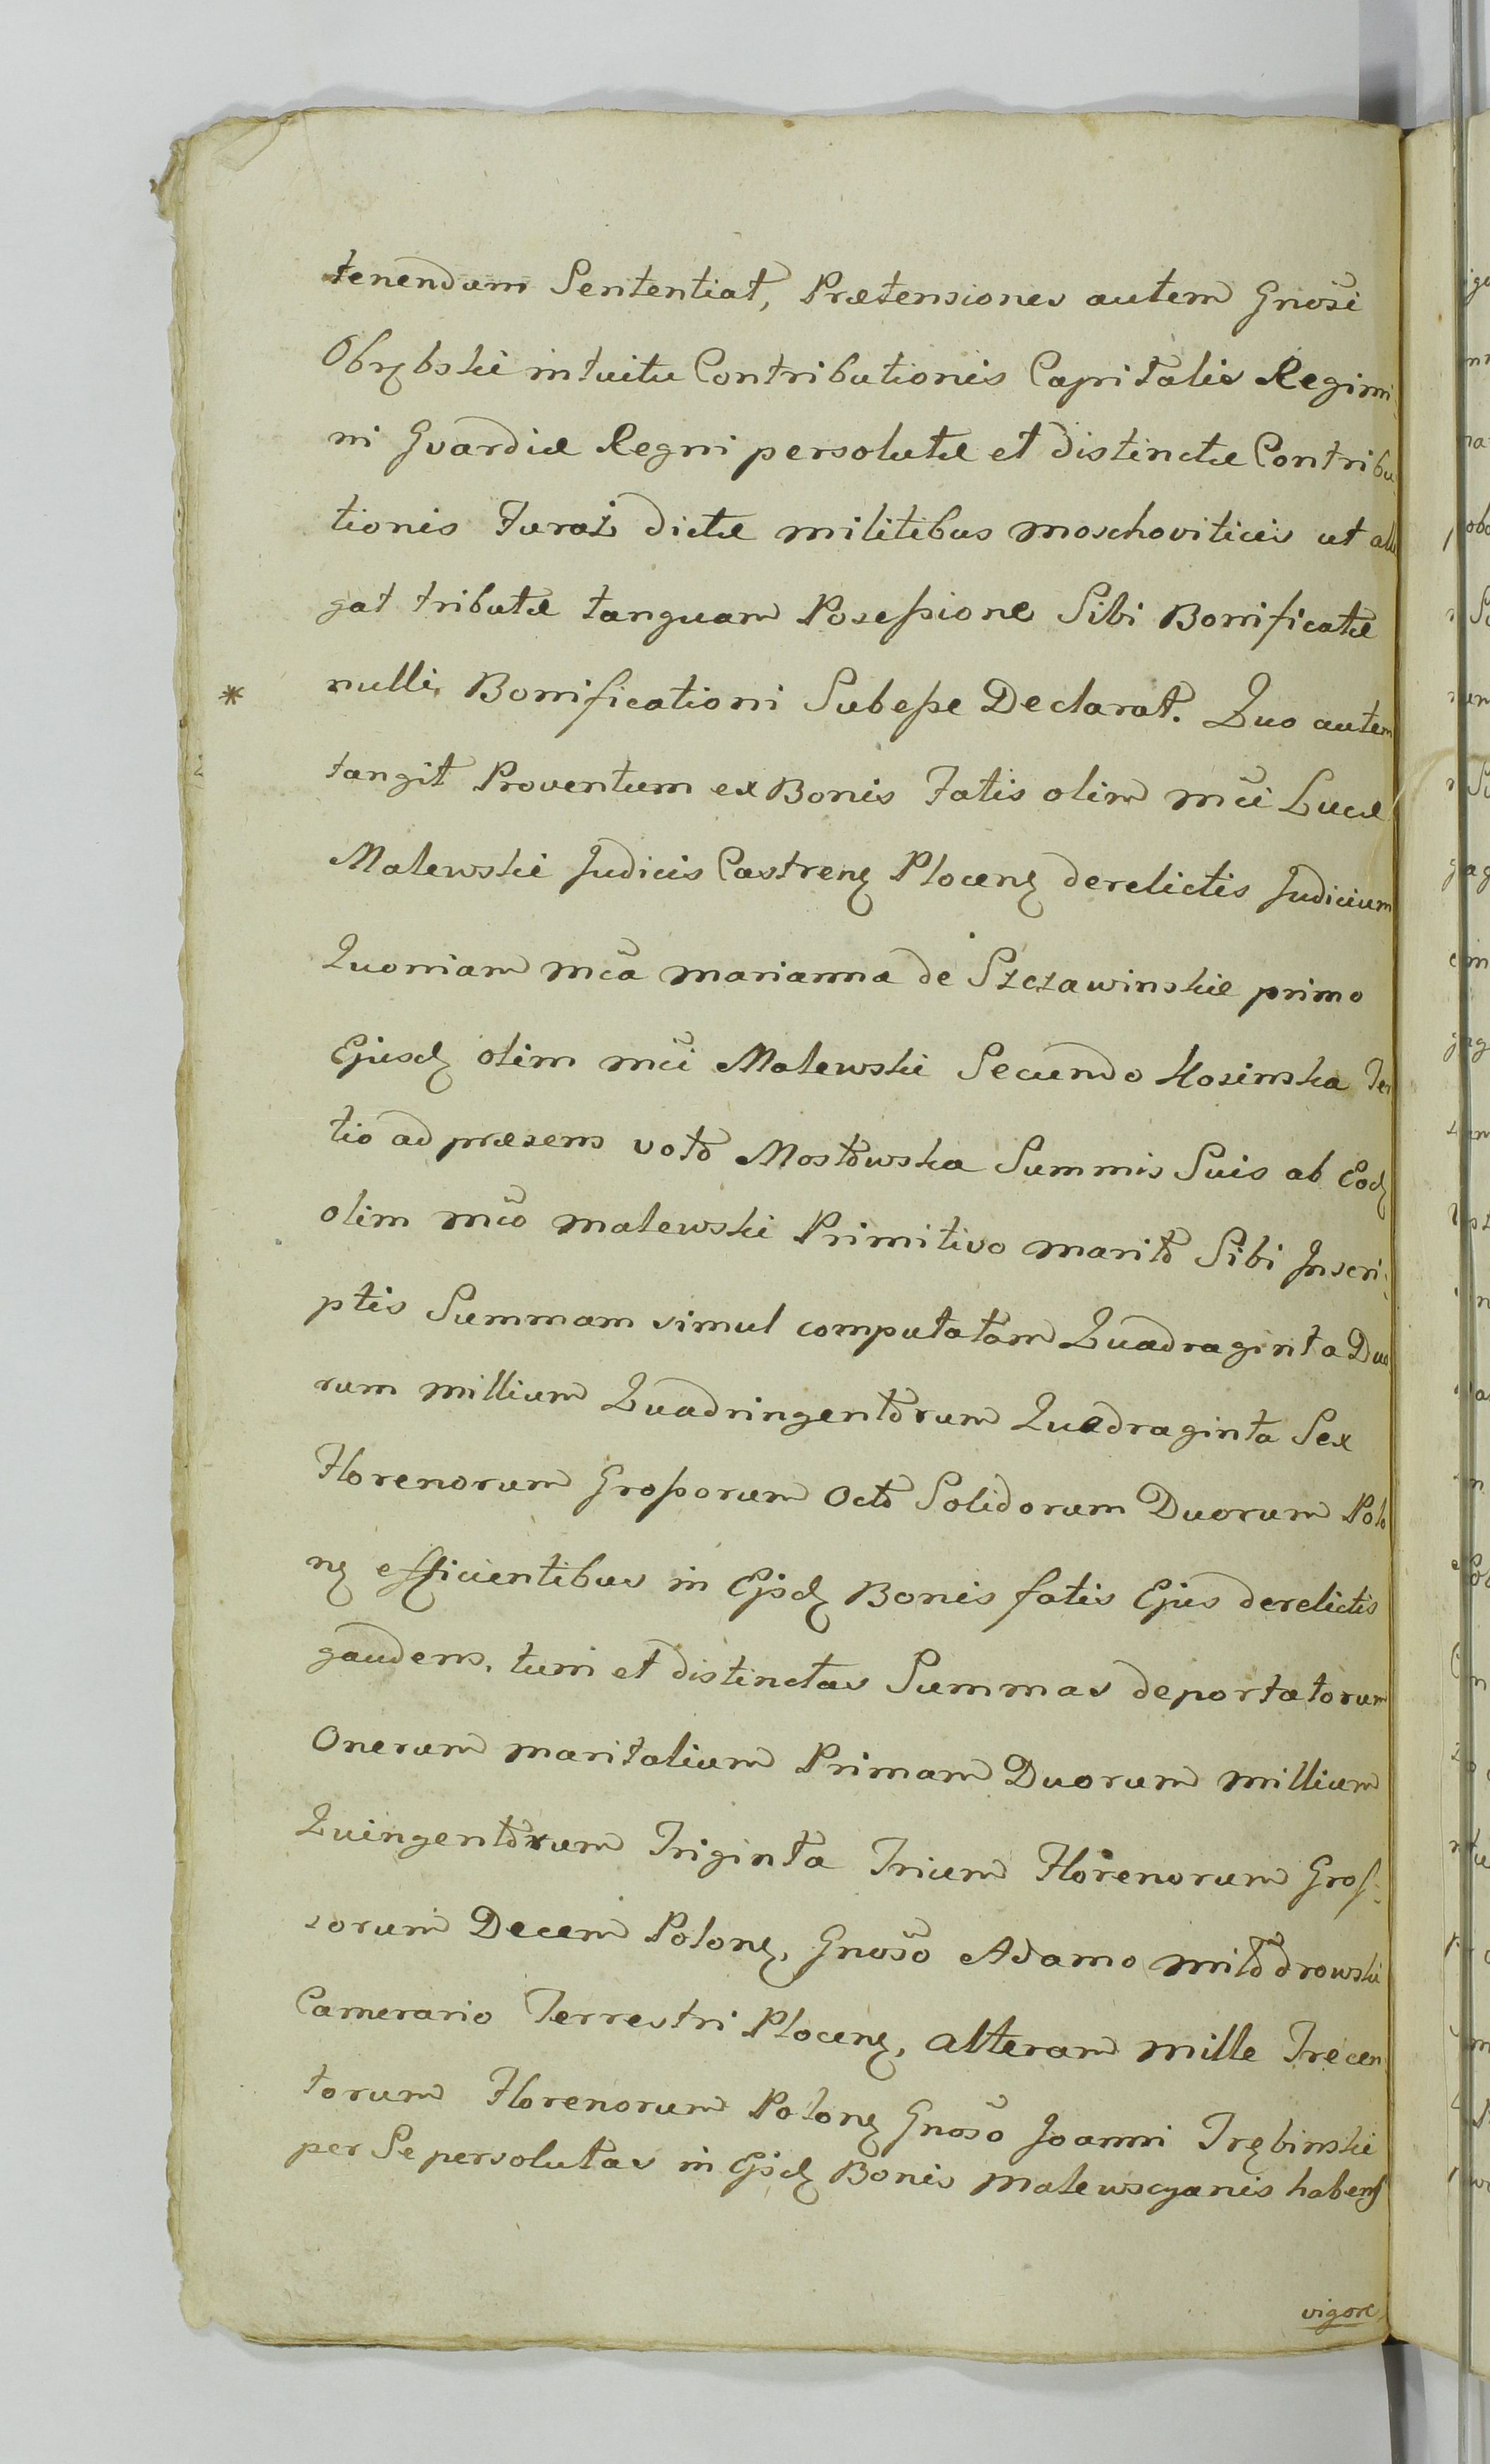 tenendam Sententiat, Prætensiones autem Gnosi
Obrębski intuitu Contributionis Capitalis Regimi-
ni Gvardiæ Regni persolutæ et distinctæ Contribu-
tionis Furaż dictæ militibus moschoviticis ut alle
gat tributæ tanquam Posessione Sibi Bonificatæ
* nulli Bonificationi Subesse Declarat. Quo autem
tangit Proventum ex Bonis Fatis olim mci Lucæ
Malewski Judicis Castrenę Plocenę derelictis Judicium
Quoniam mca marianna de Szczawinskie primo
Ejusdę olim mci Malewski Secundo Kosinska Ter
tio ad præsens voto Mostowska Summis Suis ab Eodę
olim mco malewski Primitivo marito Sibi Inscri-
ptis Summam simul computatam Quadraginta Duo
rum millium Quadringentorum Quadraginta Sex
Florenorum Grossorum Octo Solidorum Duorum Polo
nę efficientibus in Ejsdę Bonis fatis Ejus derelictis
gaudens, tum et distinctas Summas deportatorum
Onerum maritalium Primam Duorum millium
Quingentorum Triginta Trium Florenorum Gros-
sorum Decem Polonę, Gnoso Adamo Milodrowski
Camerario Terrestri Plocenę, alteram mille Trecen
torum Florenorum Polonę Gnoso Joanni Trębinski
per Se persolutas in Ejsdę Bonis malewscyanis habens
vigore